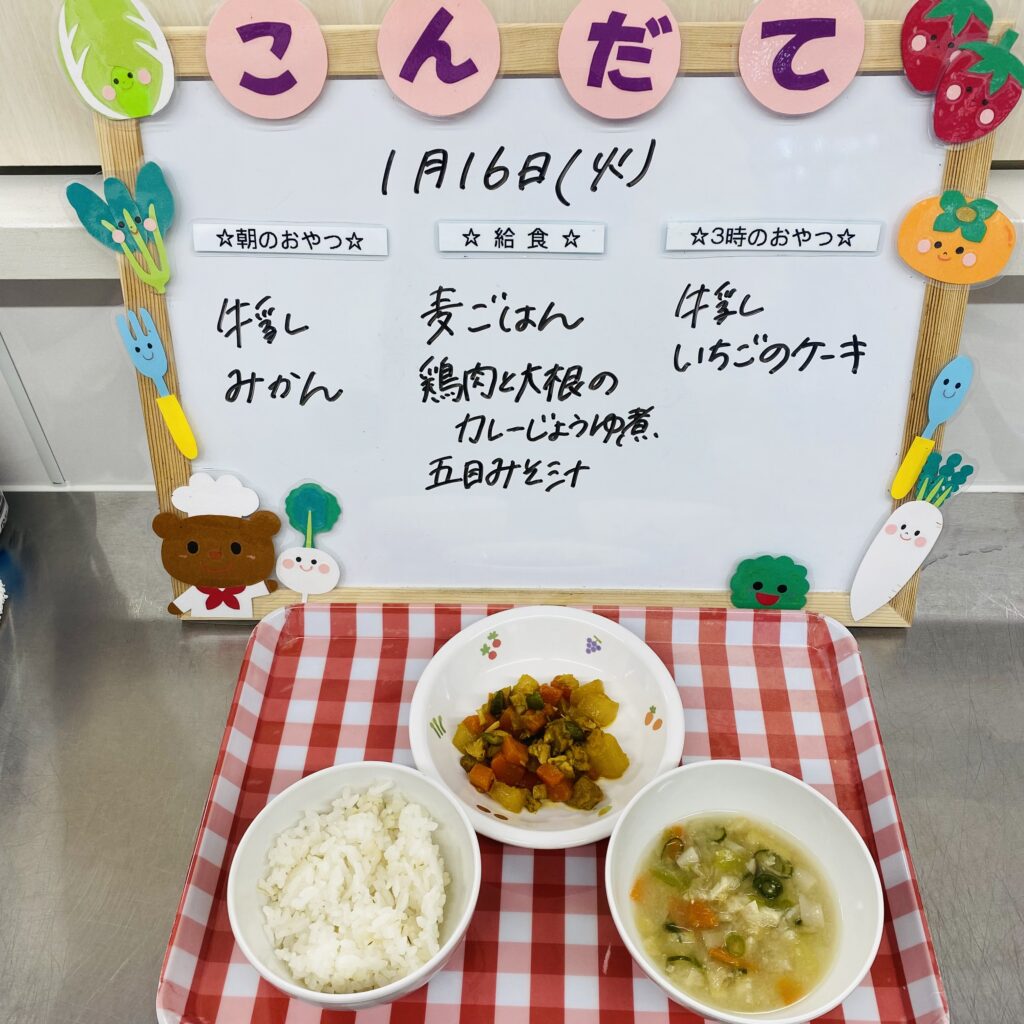 こんだて
1月16日(火)
☆朝のおやつ☆
牛乳
みかん
☆給食☆
麦ごはん
鶏肉と大根の
カレーじょうゆ煮
五目みそ汁
☆3時のおやつ☆
牛乳
いちごのケーキ